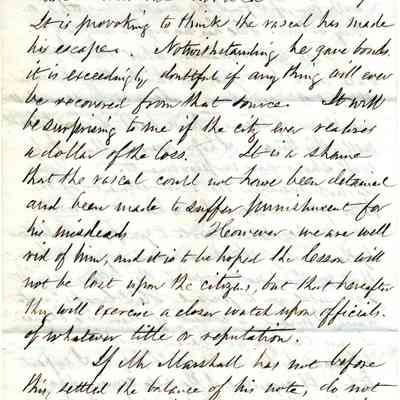 It is provoking to think the rascal has made
his escape. Notwithstanding he gave bonds
it is exceedingly doubtful if any thing will ever
be recovered from that source. It will
be surprising to me if the city ever realizes
a dollar of the loss. It is a shame
that the rascal could not have been detained
and been made to suffer punishment for
his misdeeds However we are well
rid of him, and it is to be hoped the lesson will
not be lost upon the citizens, but that hereafter
they will exercise a closer watch upon officials.
of whatever title or reputation.
If Mr Marshall has not before
this, settled the balance of his note, do not